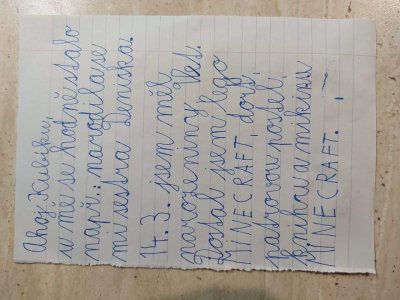 Ahoj Kubíku,
u mě se hodně stalo
např.: narodila se
mi sestra Deniska.
14.3. jsem měl
narozeniny
Dostal jsem lego
MINECRAFT, dort,
patrovou postel,
knihu a mikinu
MINECRAFT.